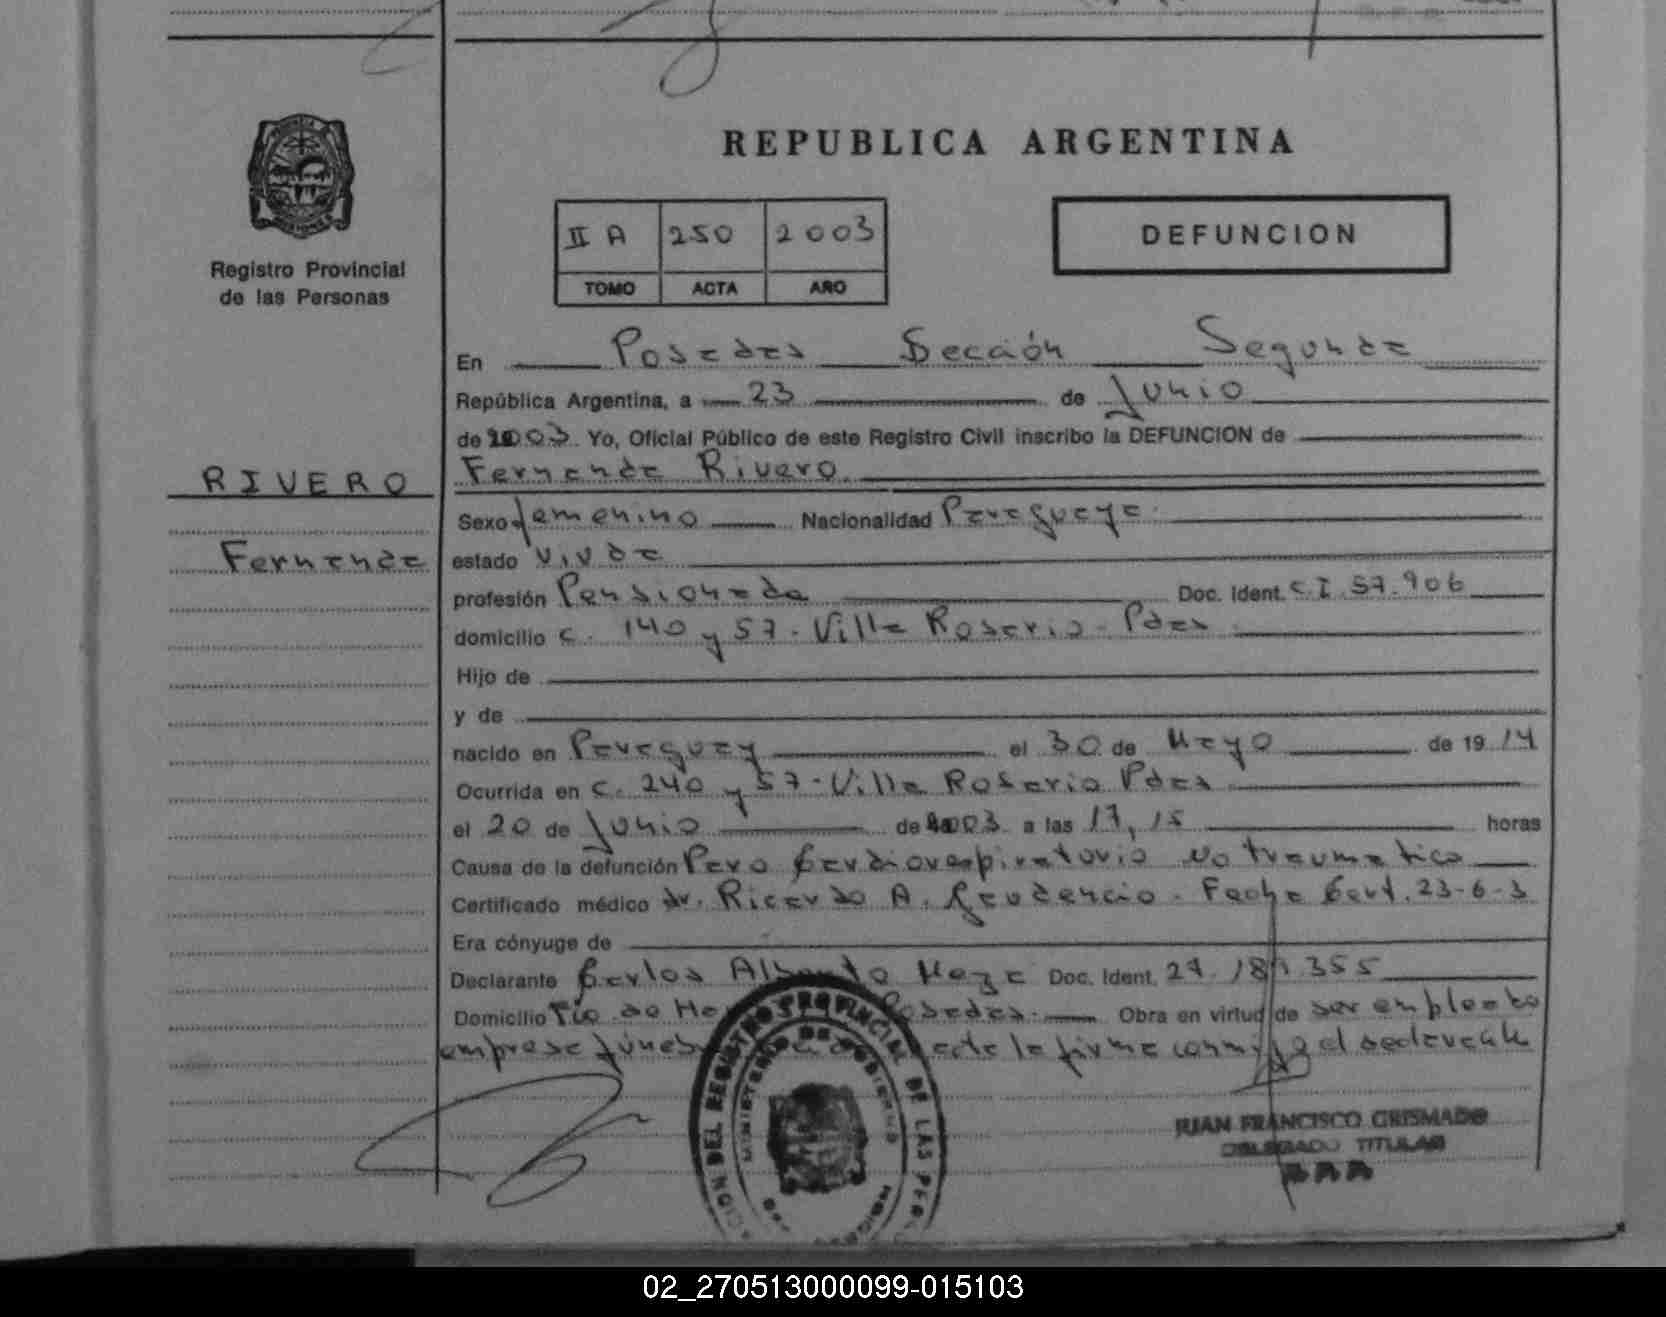 REPUBLICA ARGENTINA
II A 250 2003
TOMO ACTA AÑO
DEFUNCION
Registro Provincial
de las Personas
En Posadas Sección Segunda
República Argentina, a 23 de Junio
de 2003. Yo, Oficial Público de este Registro Civil inscribo la DEFUNCION de
RIVERO
Fernanda Rivero.
Sexo femenino Nacionalidad Paraguaya.
Fernanda
estado viuda
profesión Pensionada Doc. Ident. C.I. 57.906
domicilio c. 140 y 57 - Villa Rosario - Pdas
Hijo de
y de
nacido en Paraguay el 30 de Mayo de 1914
Ocurrida en c. 240 y 57 - Villa Rosario Pdas
el 20 de Junio de 2003 a las 17,15 horas
Causa de la defunción Paro Cardiorespiratorio no traumatico
Certificado médico dr. Ricardo A. Gaudencio - Fecha Cert. 23-6-3
Era cónyuge de
Declarante Carlos Alberto Meza Doc. Ident. 27.189.355
Domicilio Posadas. Obra en virtud de ser empleado
empresa la firma conmigo el declarante
DEL REGISTRO PROVINCIAL DE LAS
MINISTERIO DE GOBIERNO
JUAN FRANCISCO GRISMADO
DELEGADO TITULAR
02_270513000099-015103